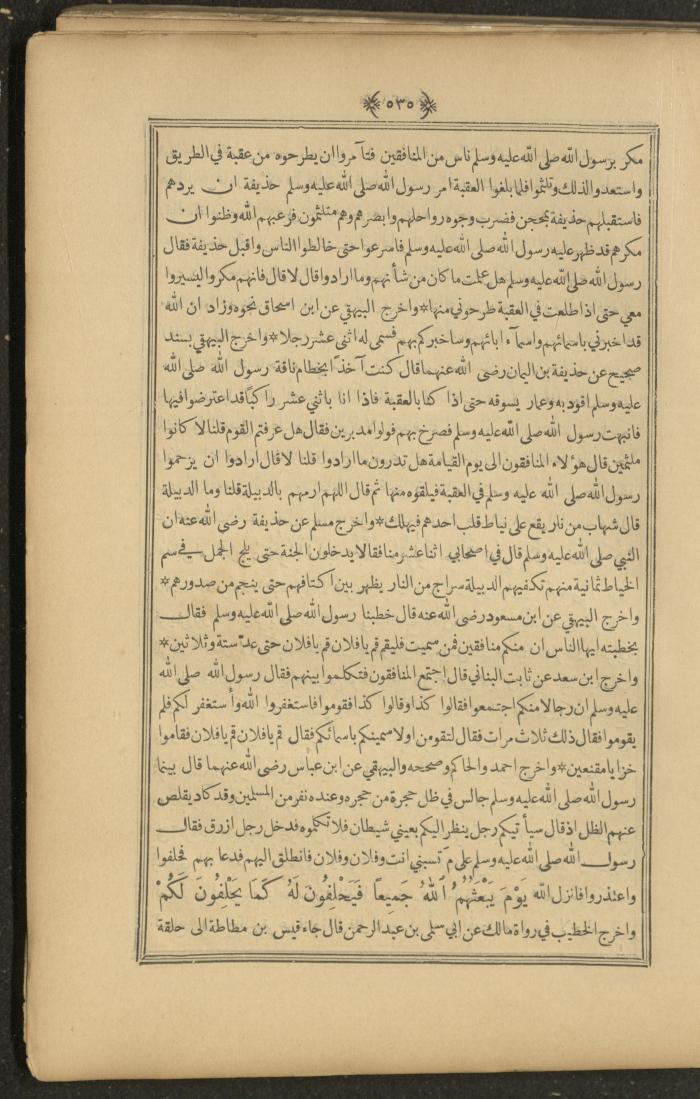 ٥٣٥
مكر برسول الله صلى الله عليه وسلم ناس من المنافقين فتآمروا ان يطرحوه من عقبة في الطريق
واستعدوا لذلك وتلثموا فلما بلغوا العقبة امر رسول الله صلى الله عليه وسلم حذيفة ان يردهم
فاستقبلهم حذيفة بمحجن فضرب وجوه رواحلهم وابصرهم وهم متلثمون فرعبهم الله وظنوا ان
مكرهم قد ظهر عليه رسول الله صلى الله عليه وسلم فاسرعوا حتى خالطوا الناس واقبل حذيفة فقال
رسول الله صلى الله عليه وسلم هل علمت ما كان من شأنهم وما ارادوا قال لا قال فانهم مكروا ليسيروا
معي حتى اذا طلعت في العقبة طرحوني منها* واخرج البيهقي عن ابن اسحاق نحوه وزاد ان الله
قد اخبرني باسمائهم واسمآء ابائهم وساخبركم بهم فسمى له اثنى عشر رجلا* واخرج البيهقي بسند
صحيح عن حذيفة بن اليمان رضى الله عنهما قال كنت آخذًا بخطام ناقة رسول الله صلى الله
عليه وسلم اقود به وعمار يسوقه حتى اذا كنا بالعقبة فاذا انا باثني عشر راكبًا قد اعترضوا فيها
فانبهت رسول الله صلى الله عليه وسلم فصرخ بهم فولوا مدبرين فقال هل عرفتم القوم قلنا لا كانوا
ملثمين قال هؤلاء المنافقون الى يوم القيامة هل تدرون ما ارادوا قلنا لا قال ارادوا ان يزحموا
رسول الله صلى الله عليه وسلم في العقبة فيلقوه منها ثم قال اللهم ارمهم بالدبيلة قلنا وما الدبيلة
قال شهاب من نار يقع على نياط قلب احدهم فيهلك* واخرج مسلم عن حذيفة رضى الله عنه ان
النبي صلى الله عليه وسلم قال في اصحابي اثنا عشر منافقا لا يدخلون الجنة حتى يلج الجمل في سم
الخياط ثمانية منهم تكفيهم الدبيلة سراج من النار يظهر بين اكتافهم حتى ينجم من صدورهم*
واخرج البيهقي عن ابن مسعود رضى الله عنه قال خطبنا رسول الله صلى الله عليه وسلم فقال
بخطبته ايها الناس ان منكم منافقين فمن سميت فليقم قم يا فلان قم يا فلان حتى عدّ ستة وثلاثين*
واخرج ابن سعد عن ثابت البناني قال اجتمع المنافقون فتكلموا بينهم فقال رسول الله صلى الله
عليه وسلم ان رجالا منكم اجتمعوا فقالوا كذا وقالوا كذا فقوموا فاستغفروا الله وأستغفر لكم فلم
يقوموا فقال ذلك ثلاث مرات فقال لتقومن اولا سمينكم باسمائكم فقال قم يا فلان قم يا فلان فقاموا
خزايا مقنعين* واخرج احمد والحاكم وصححه والبيهقي عن ابن عباس رضى الله عنهما قال بينما
رسول الله صلى الله عليه وسلم جالس في ظل حجرة من حجره وعنده نفر من المسلمين وقد كاد يقلص
عنهم الظل اذ قال سيأتيكم رجل ينظر اليكم بعيني شيطان فلا تكلموه فدخل رجل ازرق فقال
رسول الله صلى الله عليه وسلم على مَ تسبني انت وفلان وفلان فانطلق اليهم فدعا بهم فحلفوا
واعتذروا فانزل الله يَوْمَ يَبْعَثُهُمُ ٱللهُ جَمِيعاً فَيَحْلِفُونَ لَهُ كَمَا يَحْلِفُونَ لَكُمْ
واخرج الخطيب في رواة مالك عن ابي سلمى بن عبد الرحمن قال جاء قيس بن مطاطة الى حلقة